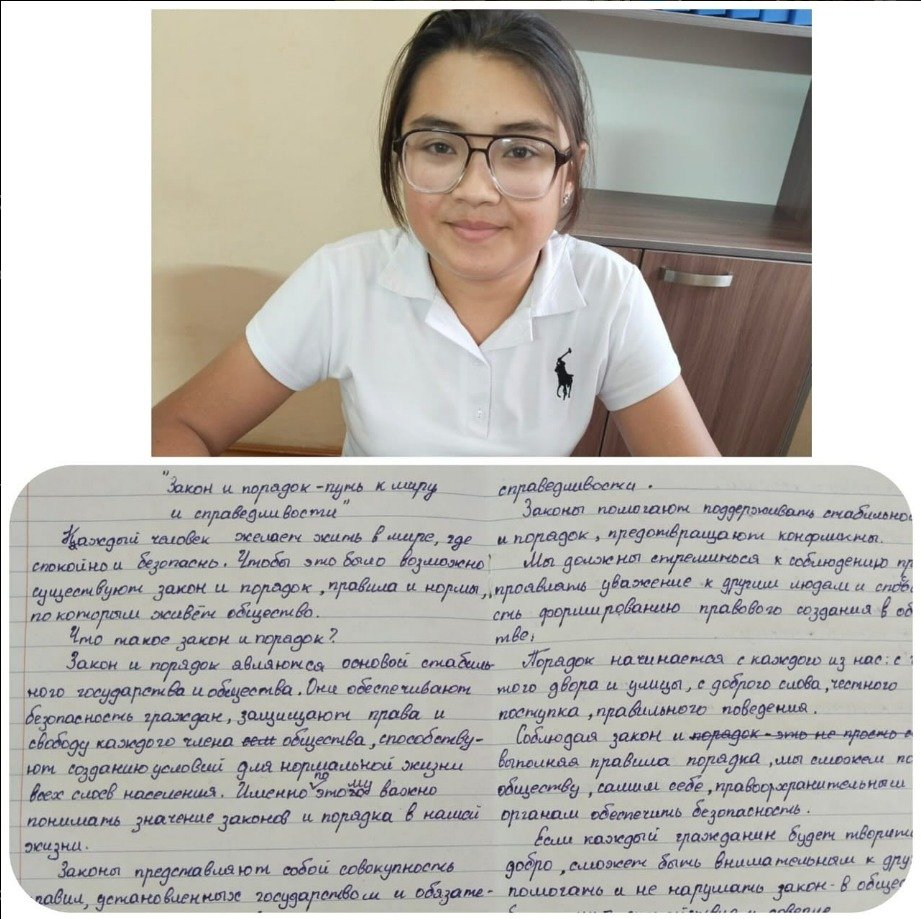 "Закон и порядок - путь к миру
и справедливости"
Каждый человек желает жить в мире, где
спокойно и безопасно. Чтобы это было возможно
существуют закон и порядок, правила и нормы,
по которым живёт общество.
Что такое закон и порядок?
Закон и порядок являются основой стабиль-
ного государства и общества. Они обеспечивают
безопасность граждан, защищают права и
свободу каждого члена общества, способству-
ют созданию условий для нормальной жизни
всех слоёв населения. Именно поэтому важно
понимать значение законов и порядка в нашей
жизни.
Законы представляют собой совокупность
правил, установленных государством и обязате-
справедливости.
Законы помогают поддерживать стабильнос
и порядок, предотвращают конфликты.
Мы должны стремиться к соблюдению пр
проявлять уважение к другим людям и спосо
сть формированию правового создания в об
тве;
Порядок начинается с каждого из нас: с
того двора и улицы, с доброго слова, честного
поступка, правильного поведения.
Соблюдая закон и порядок - это не просто
выполняя правила порядка, мы сможем по
обществу, самим себе, правоохранительным
органам обеспечить безопасность.
Если каждый гражданин будет творить
добро, сможет быть внимательным к дру
помогать и не нарушать закон - в общес